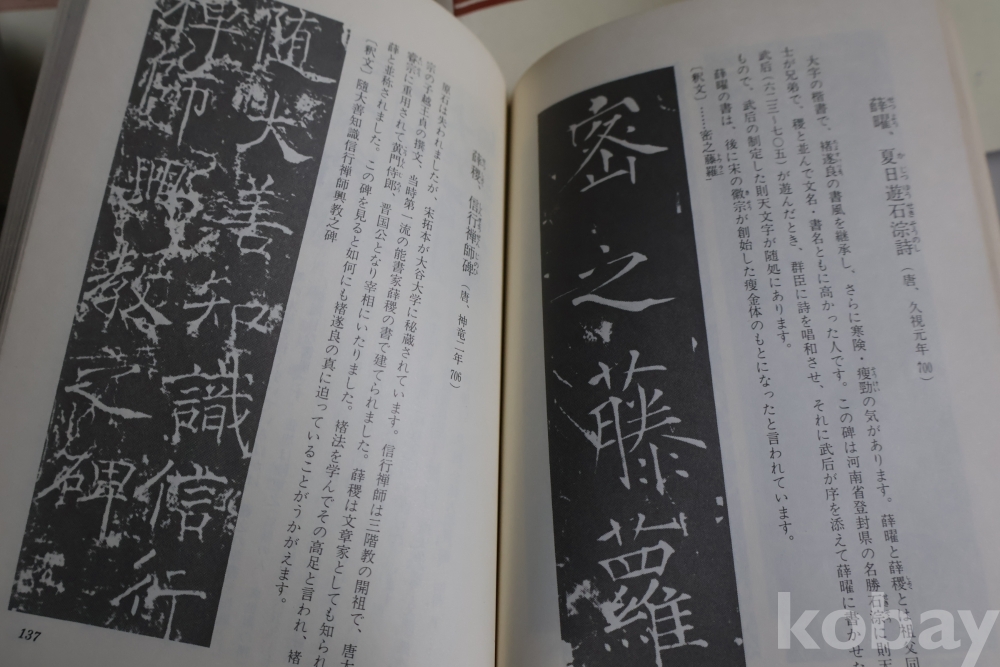 薛曜、夏日遊石淙詩（唐、久視元年 700）
大字の楷書で、褚遂良の書風を継承し、さらに寒険・瘦勁の気があります。薛曜と薛稷とは祖父
士が兄弟で、稷と並んで文名・書名ともに高かった人です。この碑は河南省登封県の名勝石淙に則天
武后（六二三〜七〇五）が遊んだとき、群臣に詩を唱和させ、それに武后が序を添えて薛曜に書かせた
もので、武后の制定した則天文字が随処にあります。
薛曜の書は、後に宋の徽宗が創始した瘦金体のもとになったと言われています。
〔釈文〕……密之藤蘿
密之藤蘿
薛稷、信行禅師碑（唐、神竜二年 706）
原石は失われましたが、宋拓本が大谷大学に秘蔵されています。信行禅師は三階教の開祖で、唐太
宗の子越王貞の撰文、当時第一流の能書家薛稷の書で建てられました。薛稷は文章家としても知られ
睿宗に重用されて黄門侍郎、晋国公となり宰相にいたりました。褚法を学んでその高足と言われ、褚
薛と並称されました。この碑を見ると如何にも褚遂良の真に迫っていることがうかがえます。
〔釈文〕隨大善知識信行禅師興教之碑
隨大善知識信行
禪師興教之碑
137
kobay